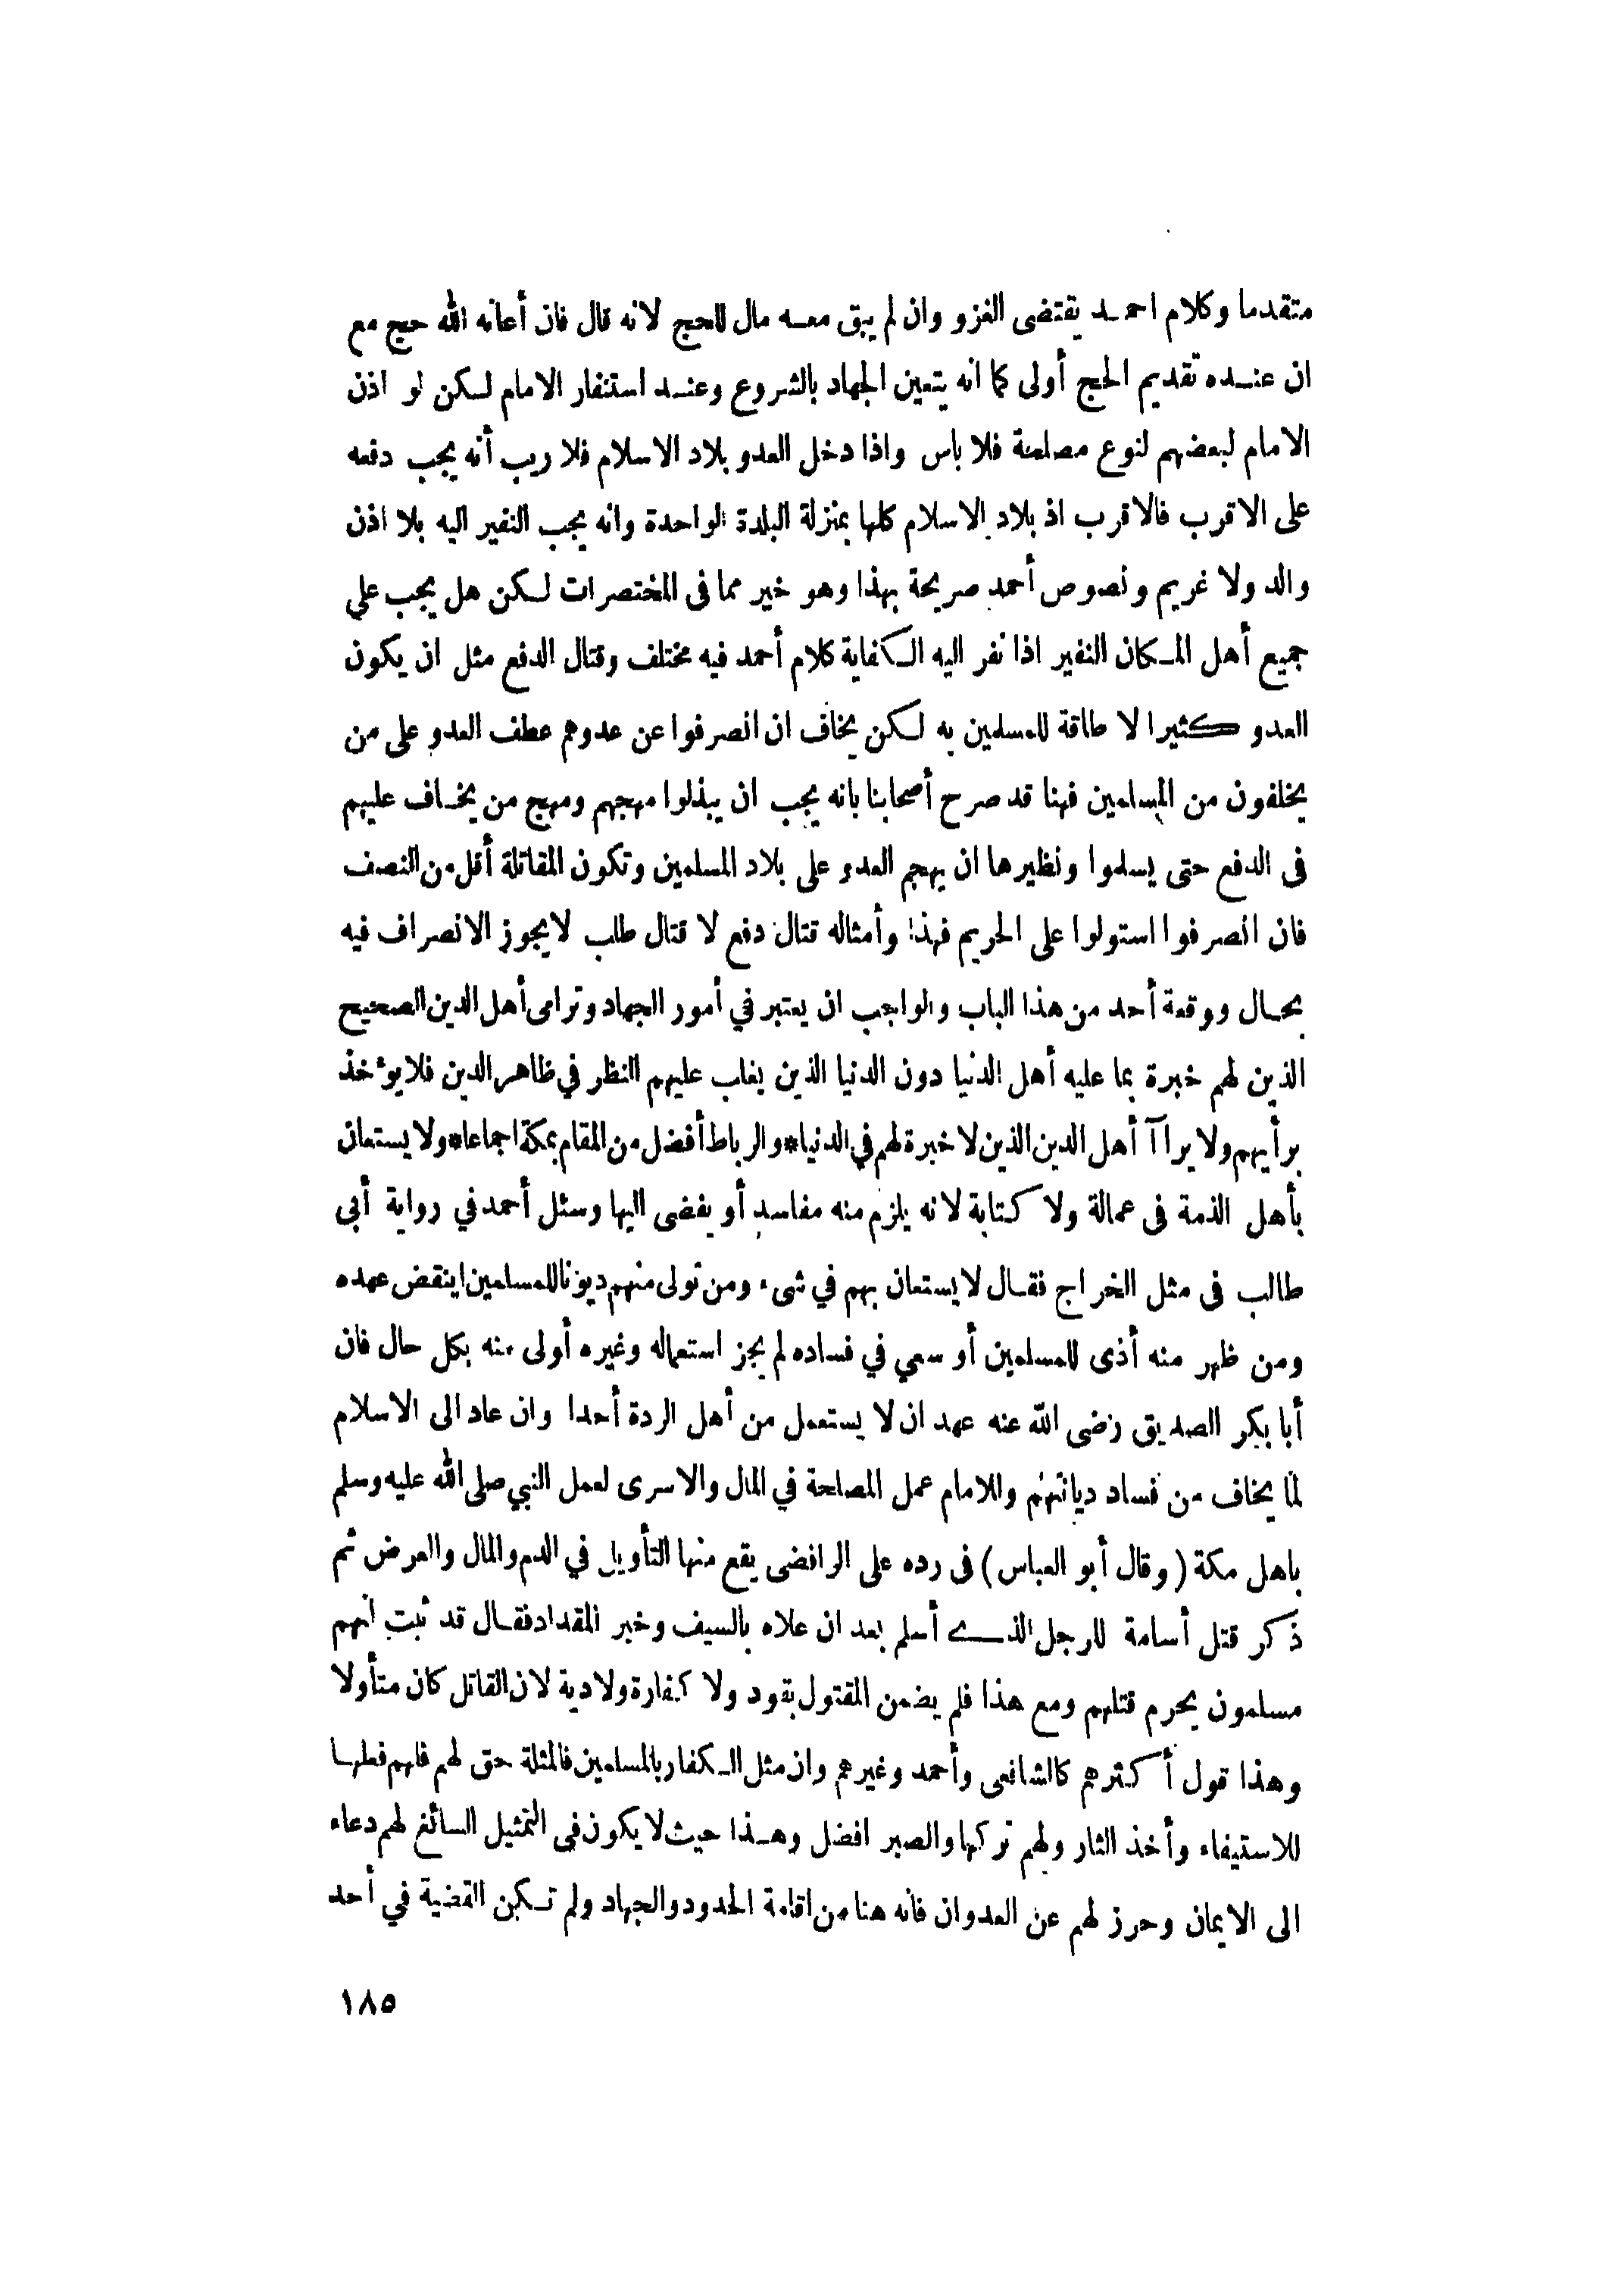 متقدما وكلام احمد يقتضى الغزو وان لم يبق معه مال للحج لانه قال فان أعانه الله حج مع
ان عنده تقديم الحج أولى كما انه يتعين الجهاد بالشروع وعند استنفار الامام لكن لو اذن
الامام لبعضهم لنوع مصلحة فلا باس واذا دخل العدو بلاد الاسلام فلا ريب أنه يجب دفعه
على الاقرب فالاقرب اذ بلاد الاسلام كلها بمنزلة البلدة الواحدة وانه يجب النفير اليه بلا اذن
والد ولا غريم ونصوص أحمد صريحة بهذا وهو خير مما فى المختصرات لكن هل يجب علي
جميع أهل المكان النفير اذا نفر اليه الكفاية كلام أحمد فيه مختلف وقتال الدفع مثل ان يكون
العدو كثيرا لا طاقة للمسلمين به لكن يخاف ان انصرفوا عن عدوهم عطف العدو على من
يخلفون من المسلمين فهنا قد صرح أصحابنا بانه يجب ان يبذلوا مهجهم ومهج من يخاف عليهم
فى الدفع حتى يسلموا ونظيرها ان يهجم العدو على بلاد المسلمين وتكون المقاتلة أقل من النصف
فان انصرفوا استولوا على الحريم فهذا وأمثاله قتال دفع لا قتال طلب لا يجوز الانصراف فيه
بحال ووقعة أحد من هذا الباب والواجب ان يعتبر في أمور الجهاد وترامى أهل الدين الصحيح
الذين لهم خبرة بما عليه أهل الدنيا دون الدنيا الذين يغلب عليهم النظر في ظاهر الدين فلا يؤخذ
برأيهم ولا يراآ أهل الدين الذين لا خبرة لهم في الدنيا* والرباط أفضل من المقام بمكة اجماعا* ولا يستعان
بأهل الذمة فى عمالة ولا كتابة لانه يلزم منه مفاسد أو يفضى اليها وسئل أحمد في رواية أبى
طالب فى مثل الخراج فقال لا يستعان بهم في شىء ومن تولى منهم ديونا للمسلمين اينقض عهده
ومن ظهر منه أذى للمسلمين أو سعي في فساده لم يجز استعماله وغيره أولى منه بكل حال فان
أبا بكر الصديق رضى الله عنه عهد ان لا يستعمل من أهل الردة أحدا وان عاد الى الاسلام
لما يخاف من فساد ديانتهم وللامام عمل المصلحة في المال والاسرى لعمل النبي صلى الله عليه وسلم
باهل مكة (وقال أبو العباس) فى رده على الرافضى يقع منها التأويل في الدم والمال والعرض ثم
ذكر قتل أسامة للرجل الذي أسلم بعد ان علاه بالسيف وخبر المقداد فقال قد ثبت انهم
مسلمون يحرم قتلهم ومع هذا فلم يضمن المقتول بقود ولا كفارة ولا دية لان القاتل كان متأولا
وهذا قول أكثرهم كالشافعى وأحمد وغيرهم وان مثل الكفار بالمسلمين فالمثلة حق لهم فلهم فعلها
للاستيفاء وأخذ الثار ولهم تركها والصبر افضل وهذا حيث لا يكون في التمثيل السائغ لهم دعاء
الى الايمان وحرز لهم عن العدوان فانه هنا من اقامة الحدود والجهاد ولم تكن القضية في أحد
١٨٥